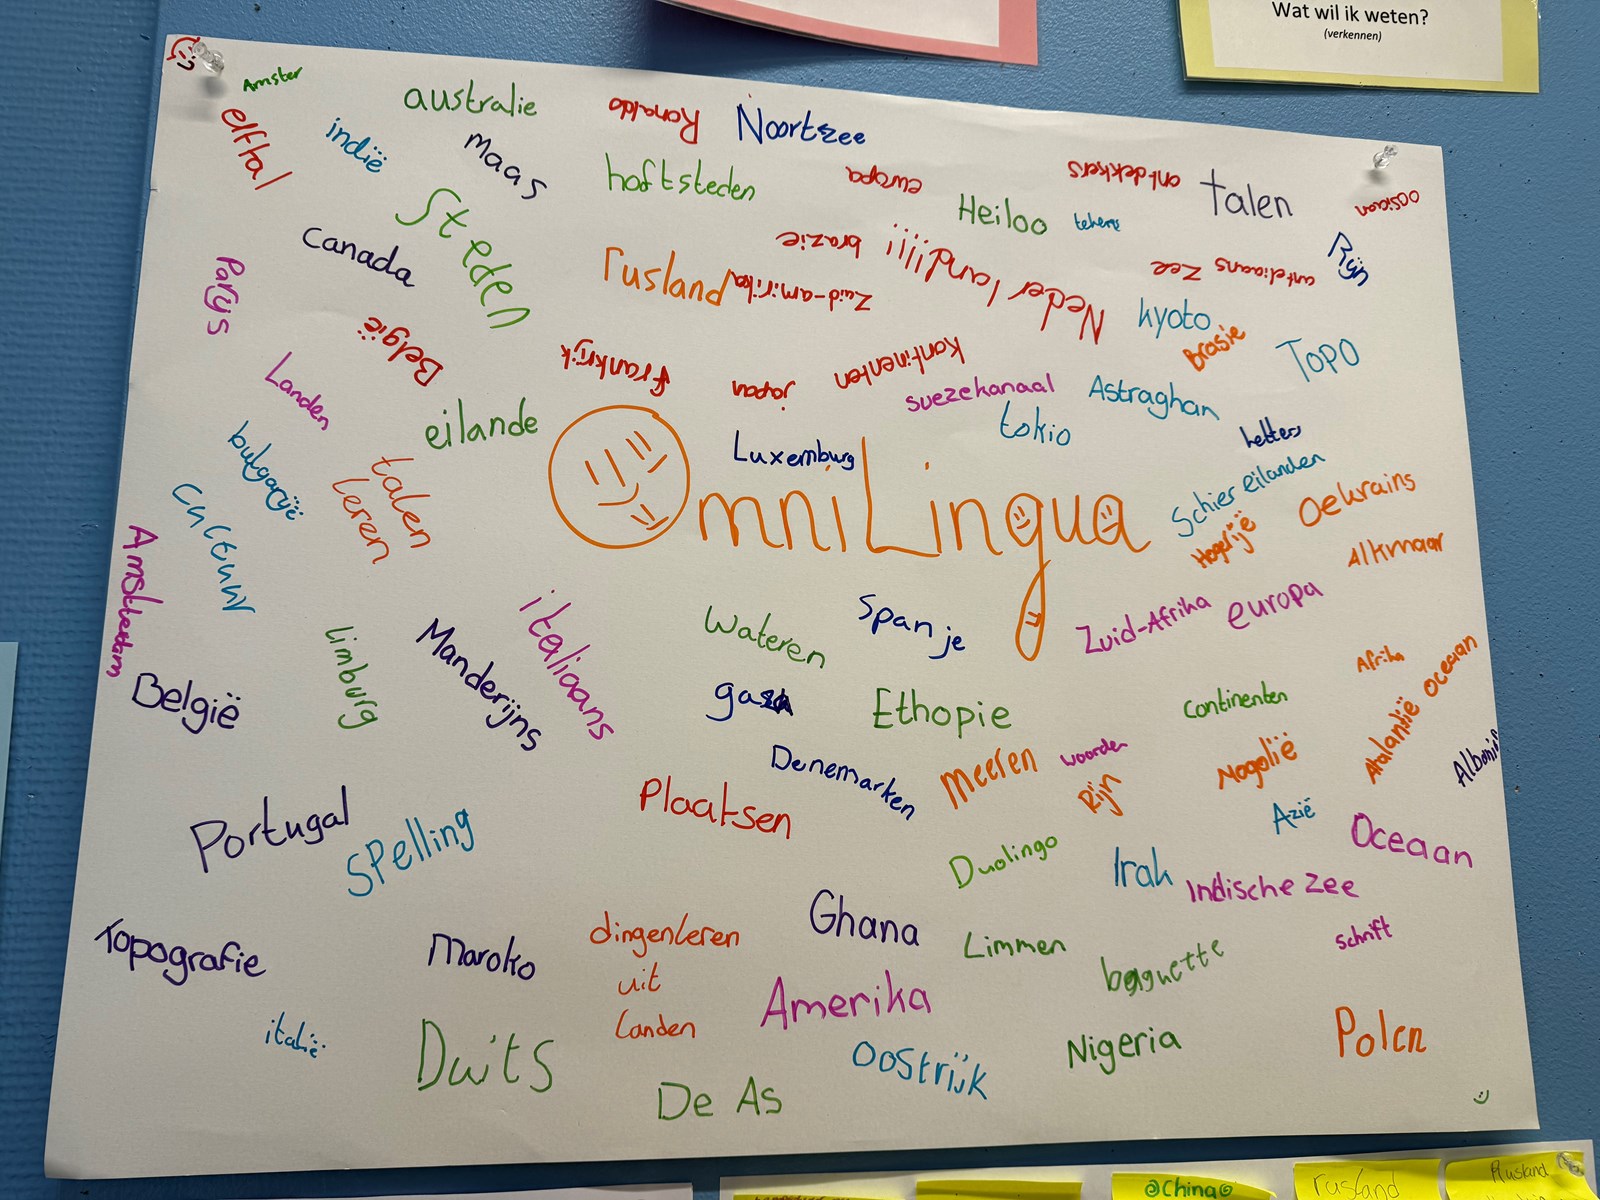 Wat wil ik weten?
(verkennen)
Amster
australie
Ronaldo
Noortzee
elftal
indië
Maas
hoftsteden
europa
ontdekkers
talen
Heiloo
tekens
Steden
canada
brazie
Nederlandjijij
Rijn
Parijs
rusland
Zuid-amirika
anteliaans zee
kyoto
Brasie
TOPO
België
frankrijk
japan
kontinenten
suezekanaal
Astraghan
Landen
eilande
tokio
Luxemburg
letters
bulgarije
talen
leren
OmniLingua
Schier eilanden
Oekrains
Cultuur
Hogerije
Alkmaar
Wateren
Spanje
Zuid-Afrika
europa
italiaans
limburg
Manderijns
België
gaza
Ethopie
Continenten
Afrika
Atalantië oceaan
Denemarken
meeren
woorden
Rijn
Mogolië
Plaatsen
Azië
Oceaan
Portugal
Spelling
Duolingo
Irak
Indische zee
Ghana
Topografie
Maroko
dingen leren
uit
landen
Limmen
baguette
schrift
Amerika
italië
Duits
Oostrijk
Nigeria
Polen
De As
China
rusland
Rusland